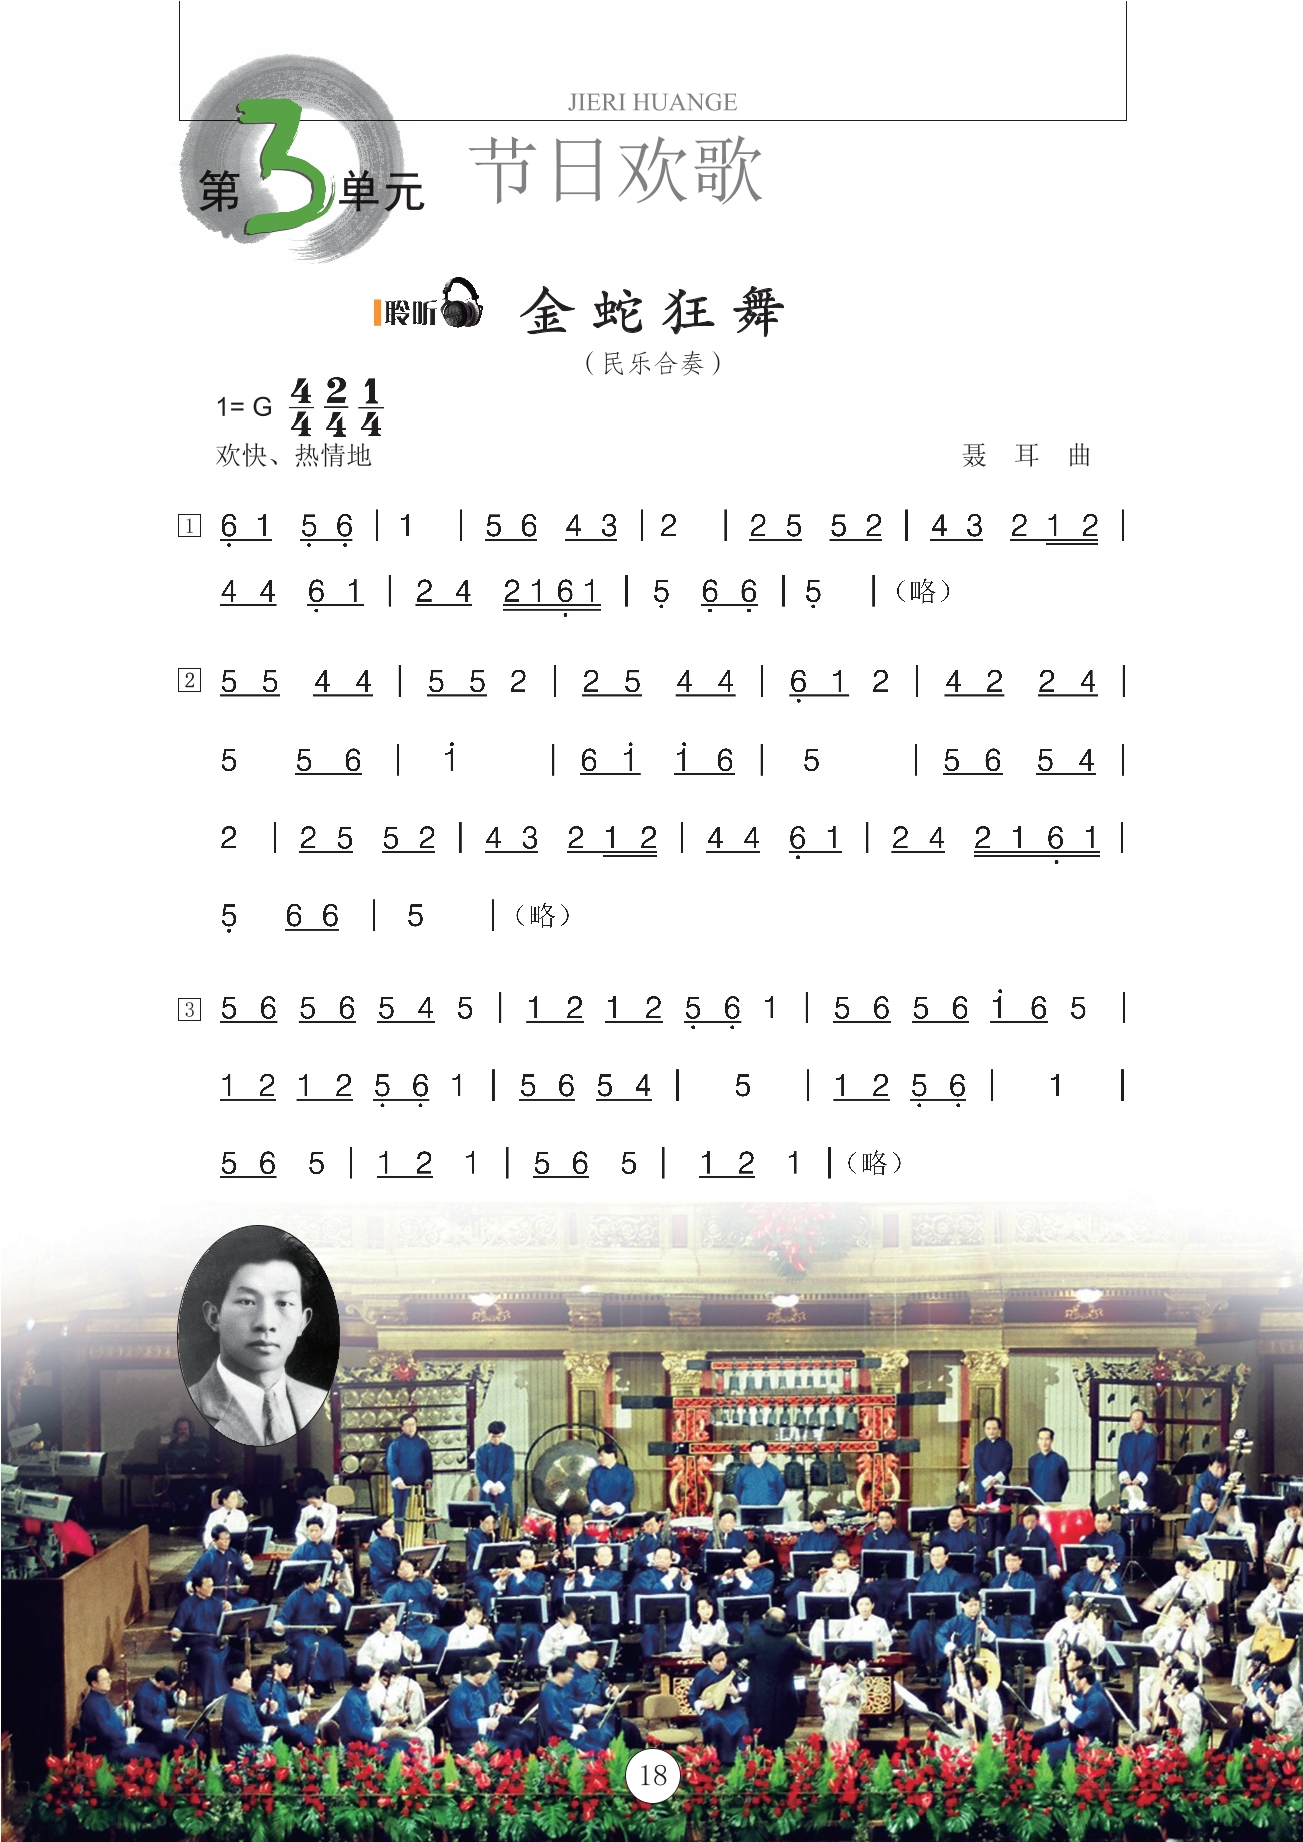 JIERI HUANGE
第3单元 节日欢歌
聆听 金蛇狂舞
（民乐合奏）
1= G 4/4 2/4 1/4
欢快、热情地 聂 耳 曲
1 6̣ 1 5̣ 6̣ | 1 | 5 6 4 3 | 2 | 2 5 5 2 | 4 3 2 1 2 |
4 4 6̣ 1 | 2 4 2 1 6̣ 1 | 5̣ 6̣ 6̣ | 5̣ |（略）
2 5 5 4 4 | 5 5 2 | 2 5 4 4 | 6̣ 1 2 | 4 2 2 4 |
5 5 6 | 1̇ | 6 1̇ 1̇ 6 | 5 | 5 6 5 4 |
2 | 2 5 5 2 | 4 3 2 1 2 | 4 4 6̣ 1 | 2 4 2 1 6̣ 1 |
5̣ 6 6 | 5 |（略）
3 5 6 5 6 5 4 5 | 1 2 1 2 5̣ 6̣ 1 | 5 6 5 6 1̇ 6 5 |
1 2 1 2 5̣ 6̣ 1 | 5 6 5 4 | 5 | 1 2 5̣ 6̣ | 1 |
5 6 5 | 1 2 1 | 5 6 5 | 1 2 1 |（略）
18